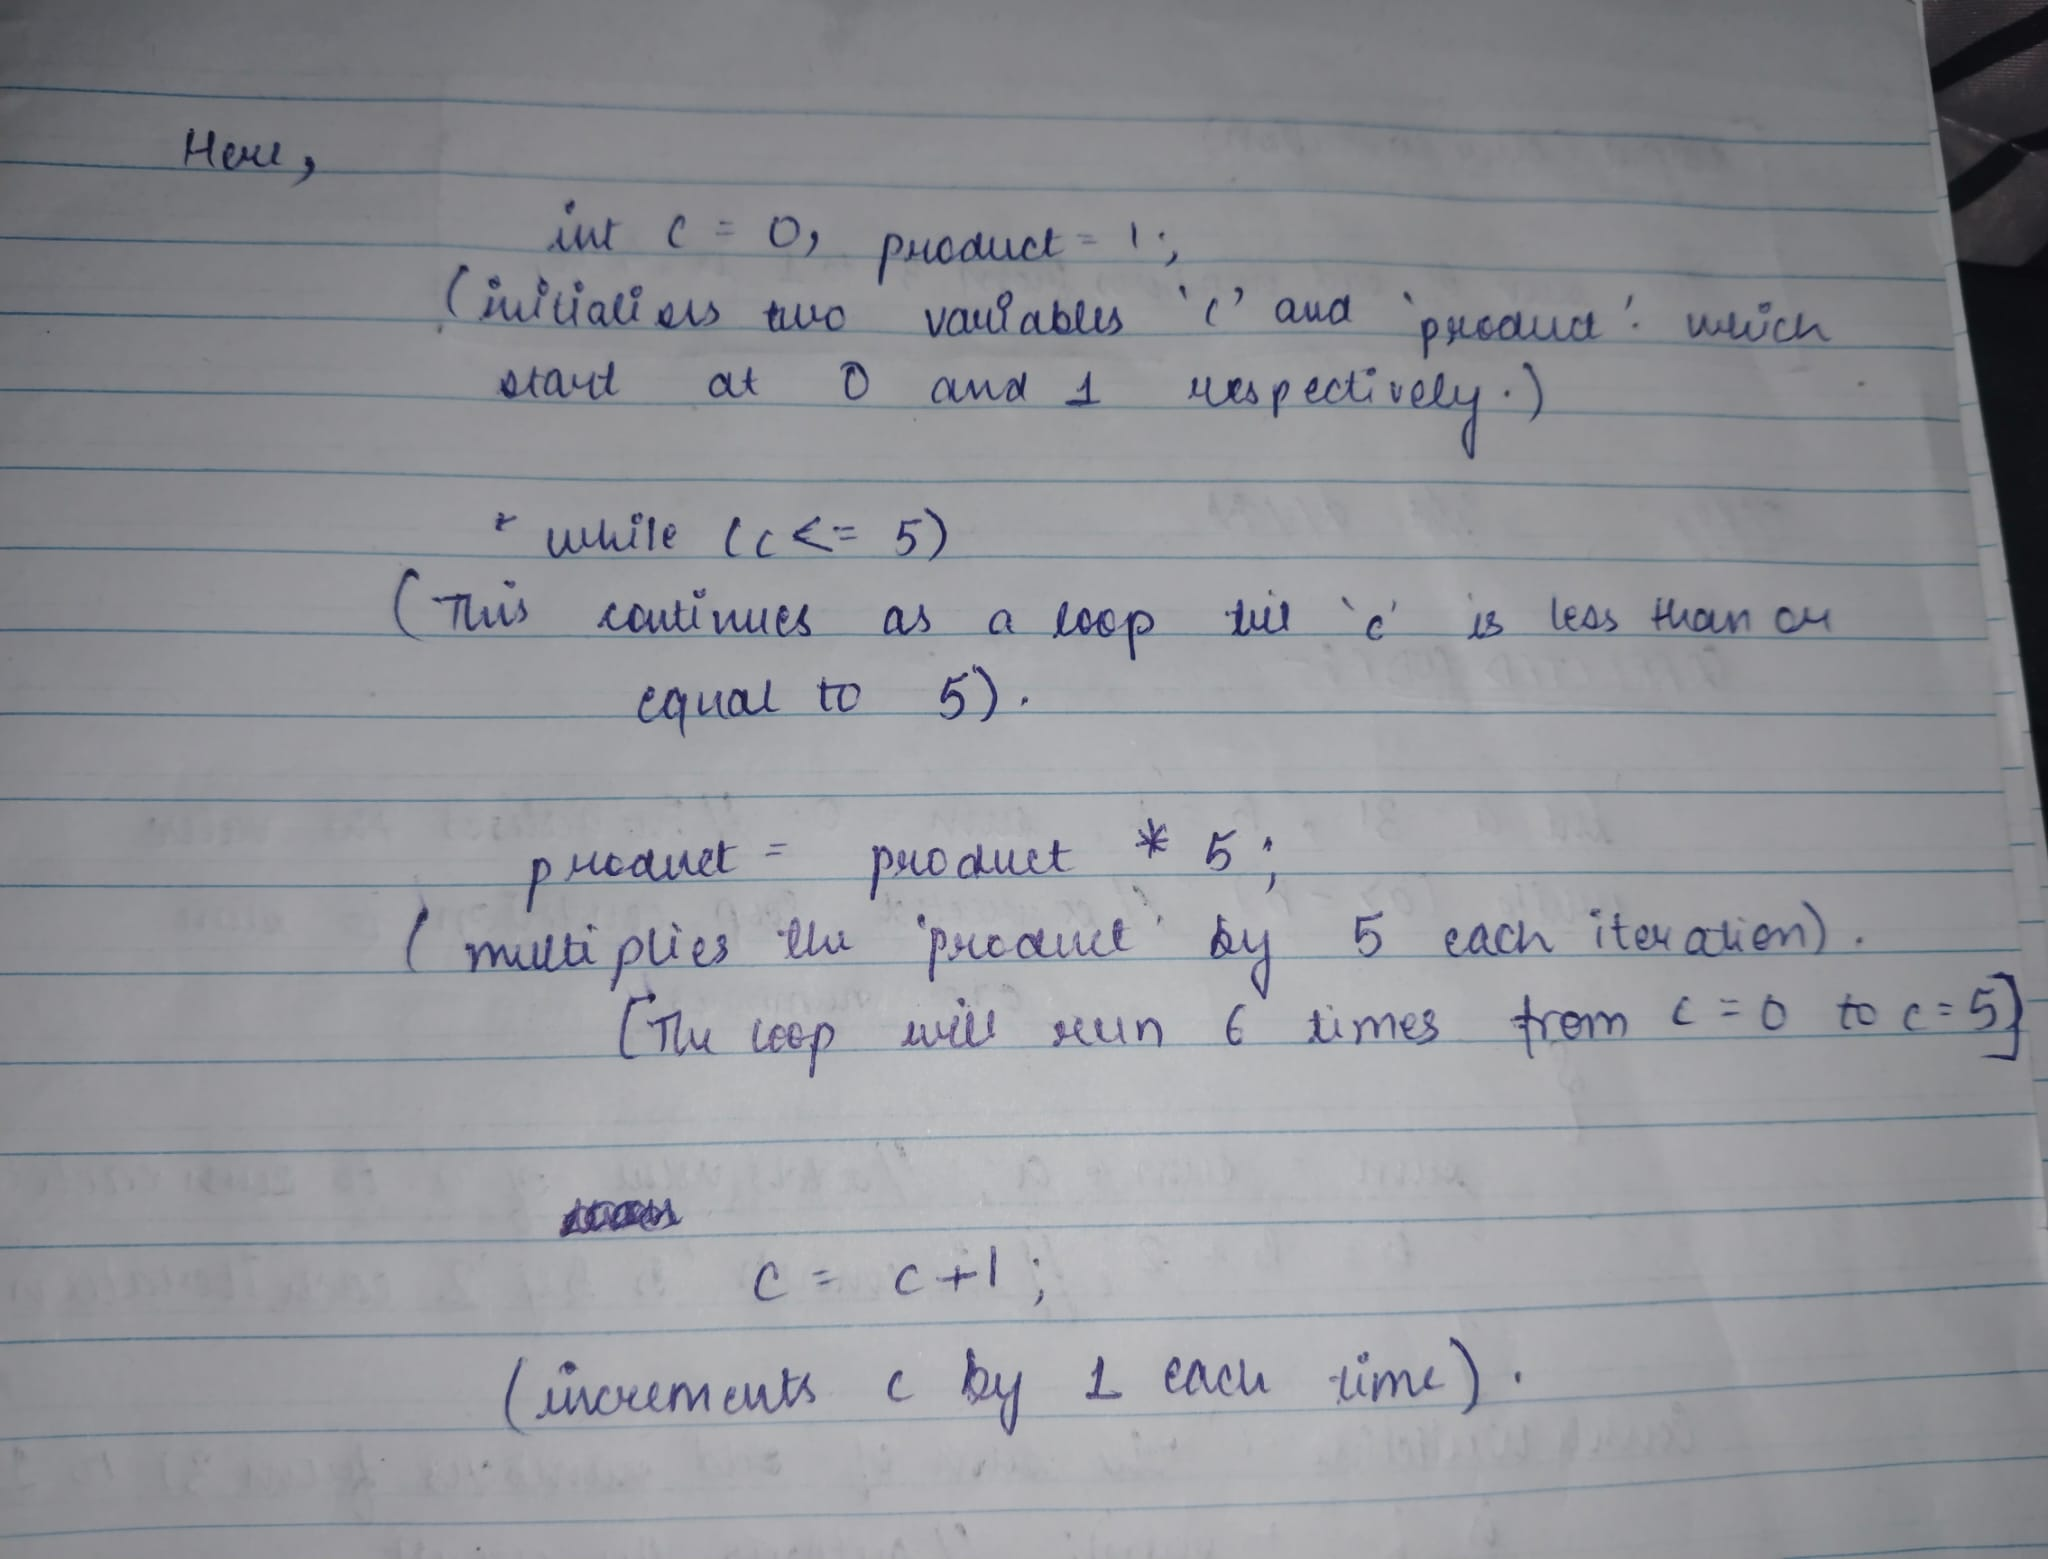 Here,
int c = 0, product = 1;
(initialises two variables 'c' and 'product'. which
start at 0 and 1 respectively.)
* while (c <= 5)
(This continues as a loop till 'c' is less than or
equal to 5).
product = product * 5;
(multiplies the 'product' by 5 each iteration).
[The loop will run 6 times from c = 0 to c = 5]
c = c + 1;
(increments c by 1 each time).